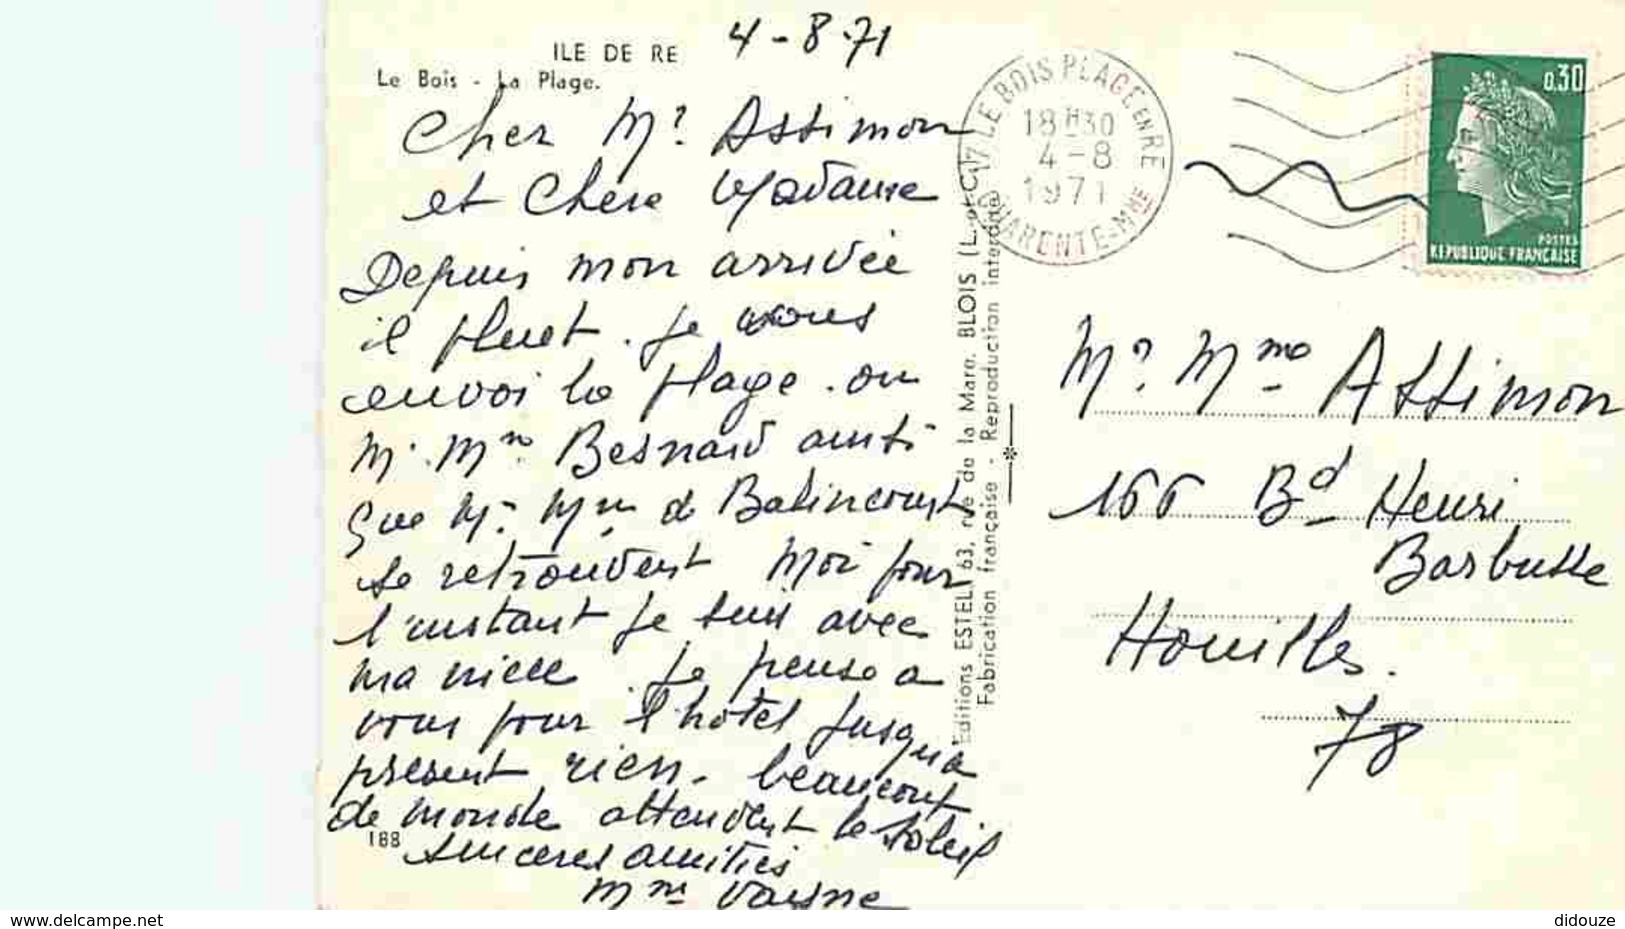 4-8-71
ILE DE RE
Le Bois - La Plage.
Cher Mr Assimon
et Chere Madame
Depuis mon arrivée
il pluet. je vous
envoi la plage. ou
M. Mme Besnard ainsi
que Mr Mme de Balincourt
se retrouvent Moi pour
l'instant je suis avec
ma niece. je pense a
vous pour l'hotel jusqu'a
présent rien. beaucoup
de monde attendent le soleil
sinceres amitiés
Mme
188
Editions ESTEL, 63, rue de la Mare. BLOIS (L.-et-C.)
Fabrication française - Reproduction interdite
17 LE BOIS PLAGE EN RE
18H30
4-8
1971
CHARENTE-MME
0,30
POSTES
REPUBLIQUE FRANÇAISE
Mr Mme Assimon
166 Bd Henri
Barbusse
Houilles.
78
www.delcampe.net
didouze